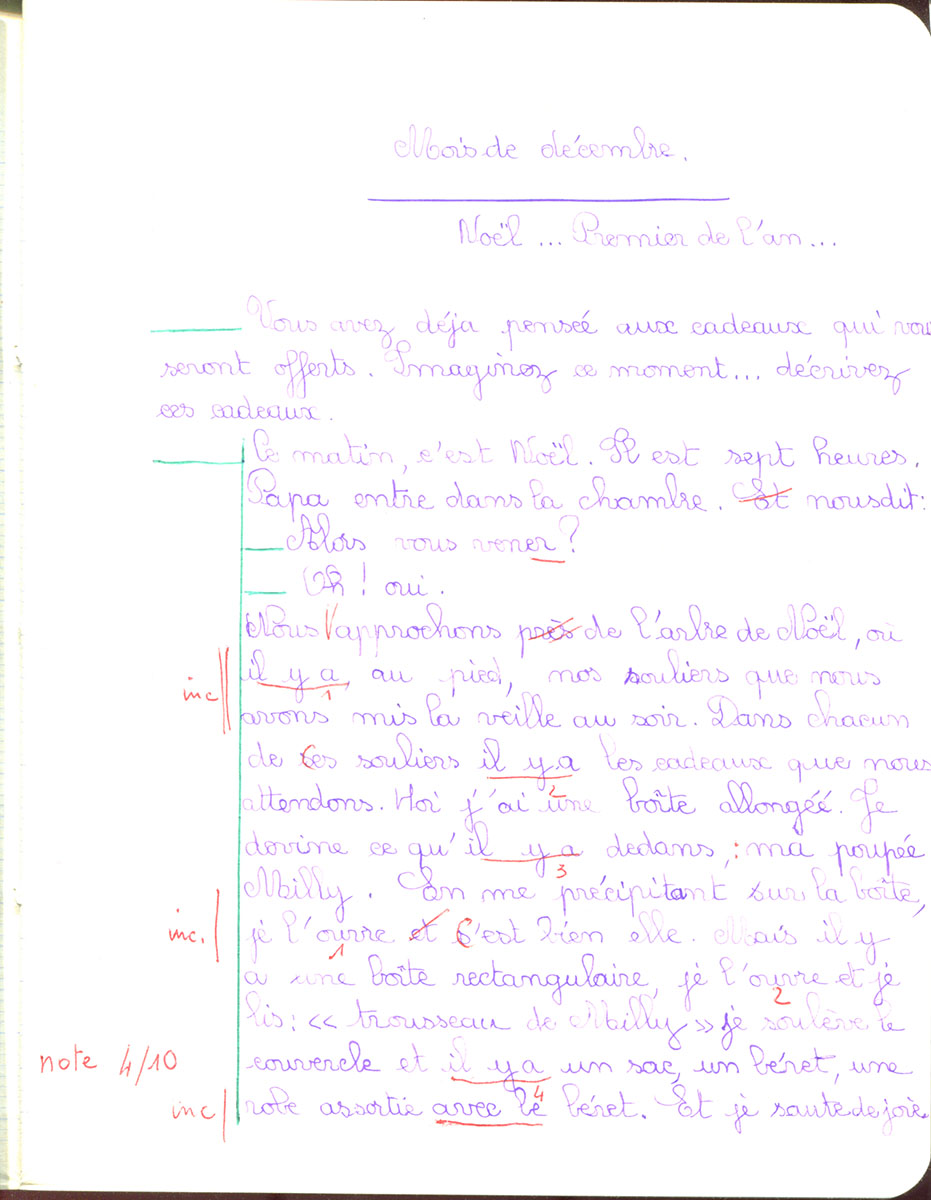 Mois de décembre.
Noël ... Premier de l'an ...
Vous avez déja penseé aux cadeaux qui vous
seront offerts. Imaginez ce moment... décrivez
ces cadeaux.
Ce matin, c'est Noël. Il est sept heures.
Papa entre dans la chambre. Et nous dit:
— Alors vous vener?
— Oh! oui.
Nous approchons près de l'arbre de Noël, où
inc il y a, au pied, nos souliers que nous
1
avons mis la veille au soir. Dans chacun
de ces souliers il y a les cadeaux que nous
2
attendons. Moi j'ai une boîte allongéé. Je
devine ce qu'il y a dedans,: ma poupée
3
Milly. En me précipitant sur la boîte,
inc. je l'ouvre et C'est bien elle. Mais il y
1
a une boîte rectangulaire, je l'ouvre et je
2
lis: « trousseau de Milly » je soulève le
note 4/10 couvercle et il y a un sac, un béret, une
4
inc robe assortie avec le béret. Et je saute de joie